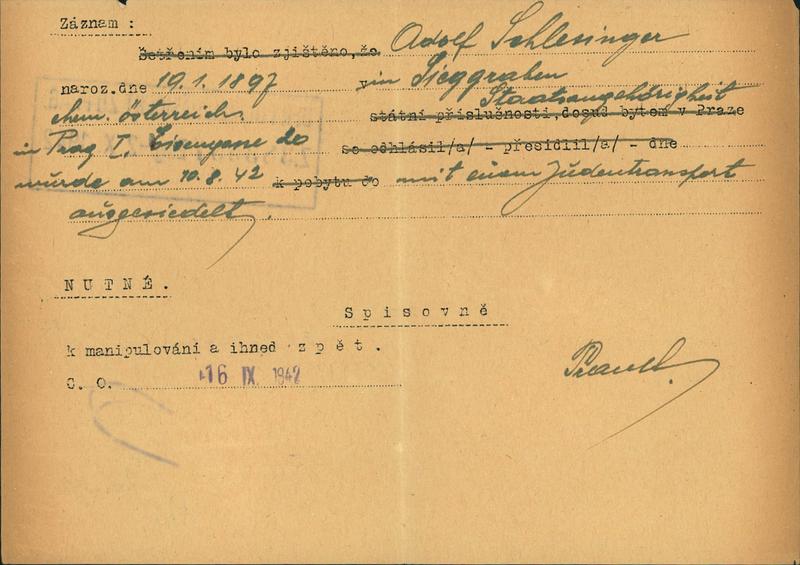 Záznam :
Šetřením bylo zjištěno, že Adolf Schlesinger
naroz. dne 19.1.1897 in Sieggraben
Staatsangehörigkeit
ehem. Österreich. státní příslušnosti, dosud bytem v Praze
in Prag I, Eisengasse se odhlásil/a/ - přesídlil/a/ - dne
wurde am 10.8.42 k pobytu do mit einem Judentransport
ausgesiedelt.
NUTNÉ.
Spisovně
k manipulování a ihned zpět.
C. O. 16 IX 1942